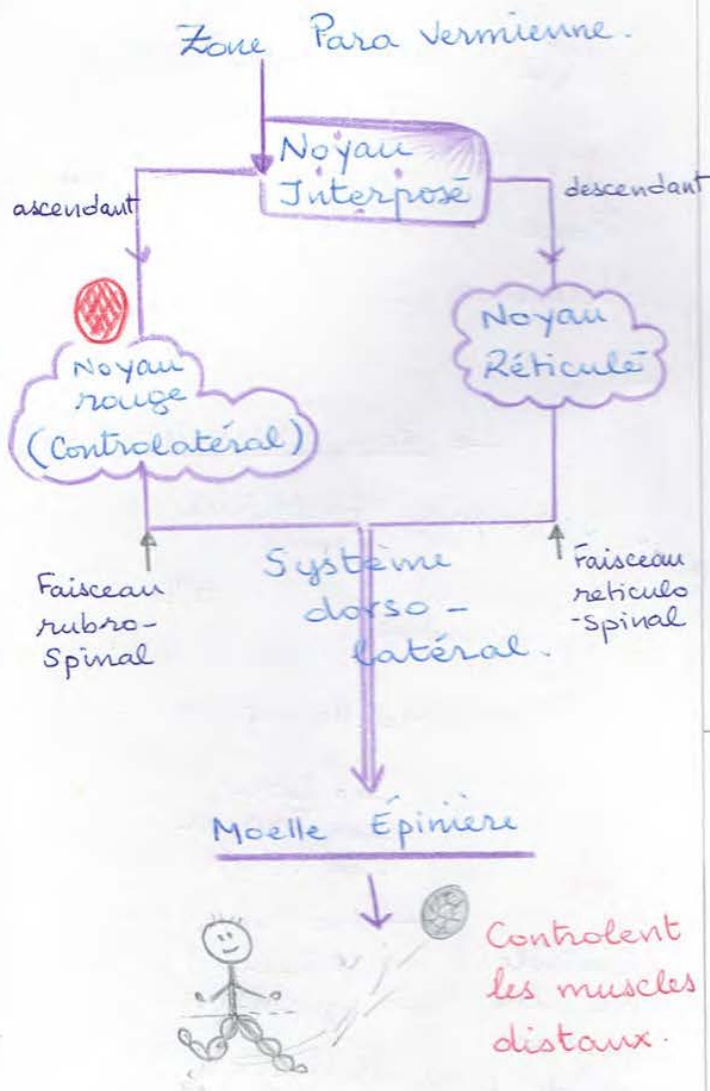 Zone Para vermienne.
Noyau
Interposé
ascendant
descendant
Noyau
rouge
(Controlatéral)
Noyau
Réticulé
Faisceau
rubro-
Spinal
Système
dorso-
latéral.
Faisceau
reticulo
-Spinal
Moelle Épinière
Controlent
les muscles
distaux.